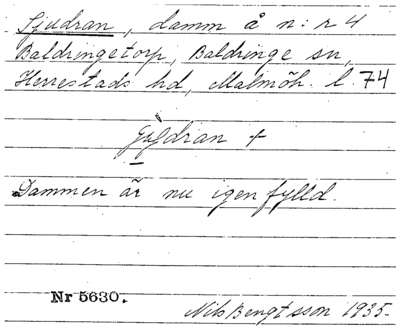 Sjudran, damm å n:r 4
Baldringetorp, Baldringe sn,
Herrestads hd, Malmöh. l. 74
+
Dammen är nu igenfylld.
Nr 5630.
Nils Bengtsson 1935.